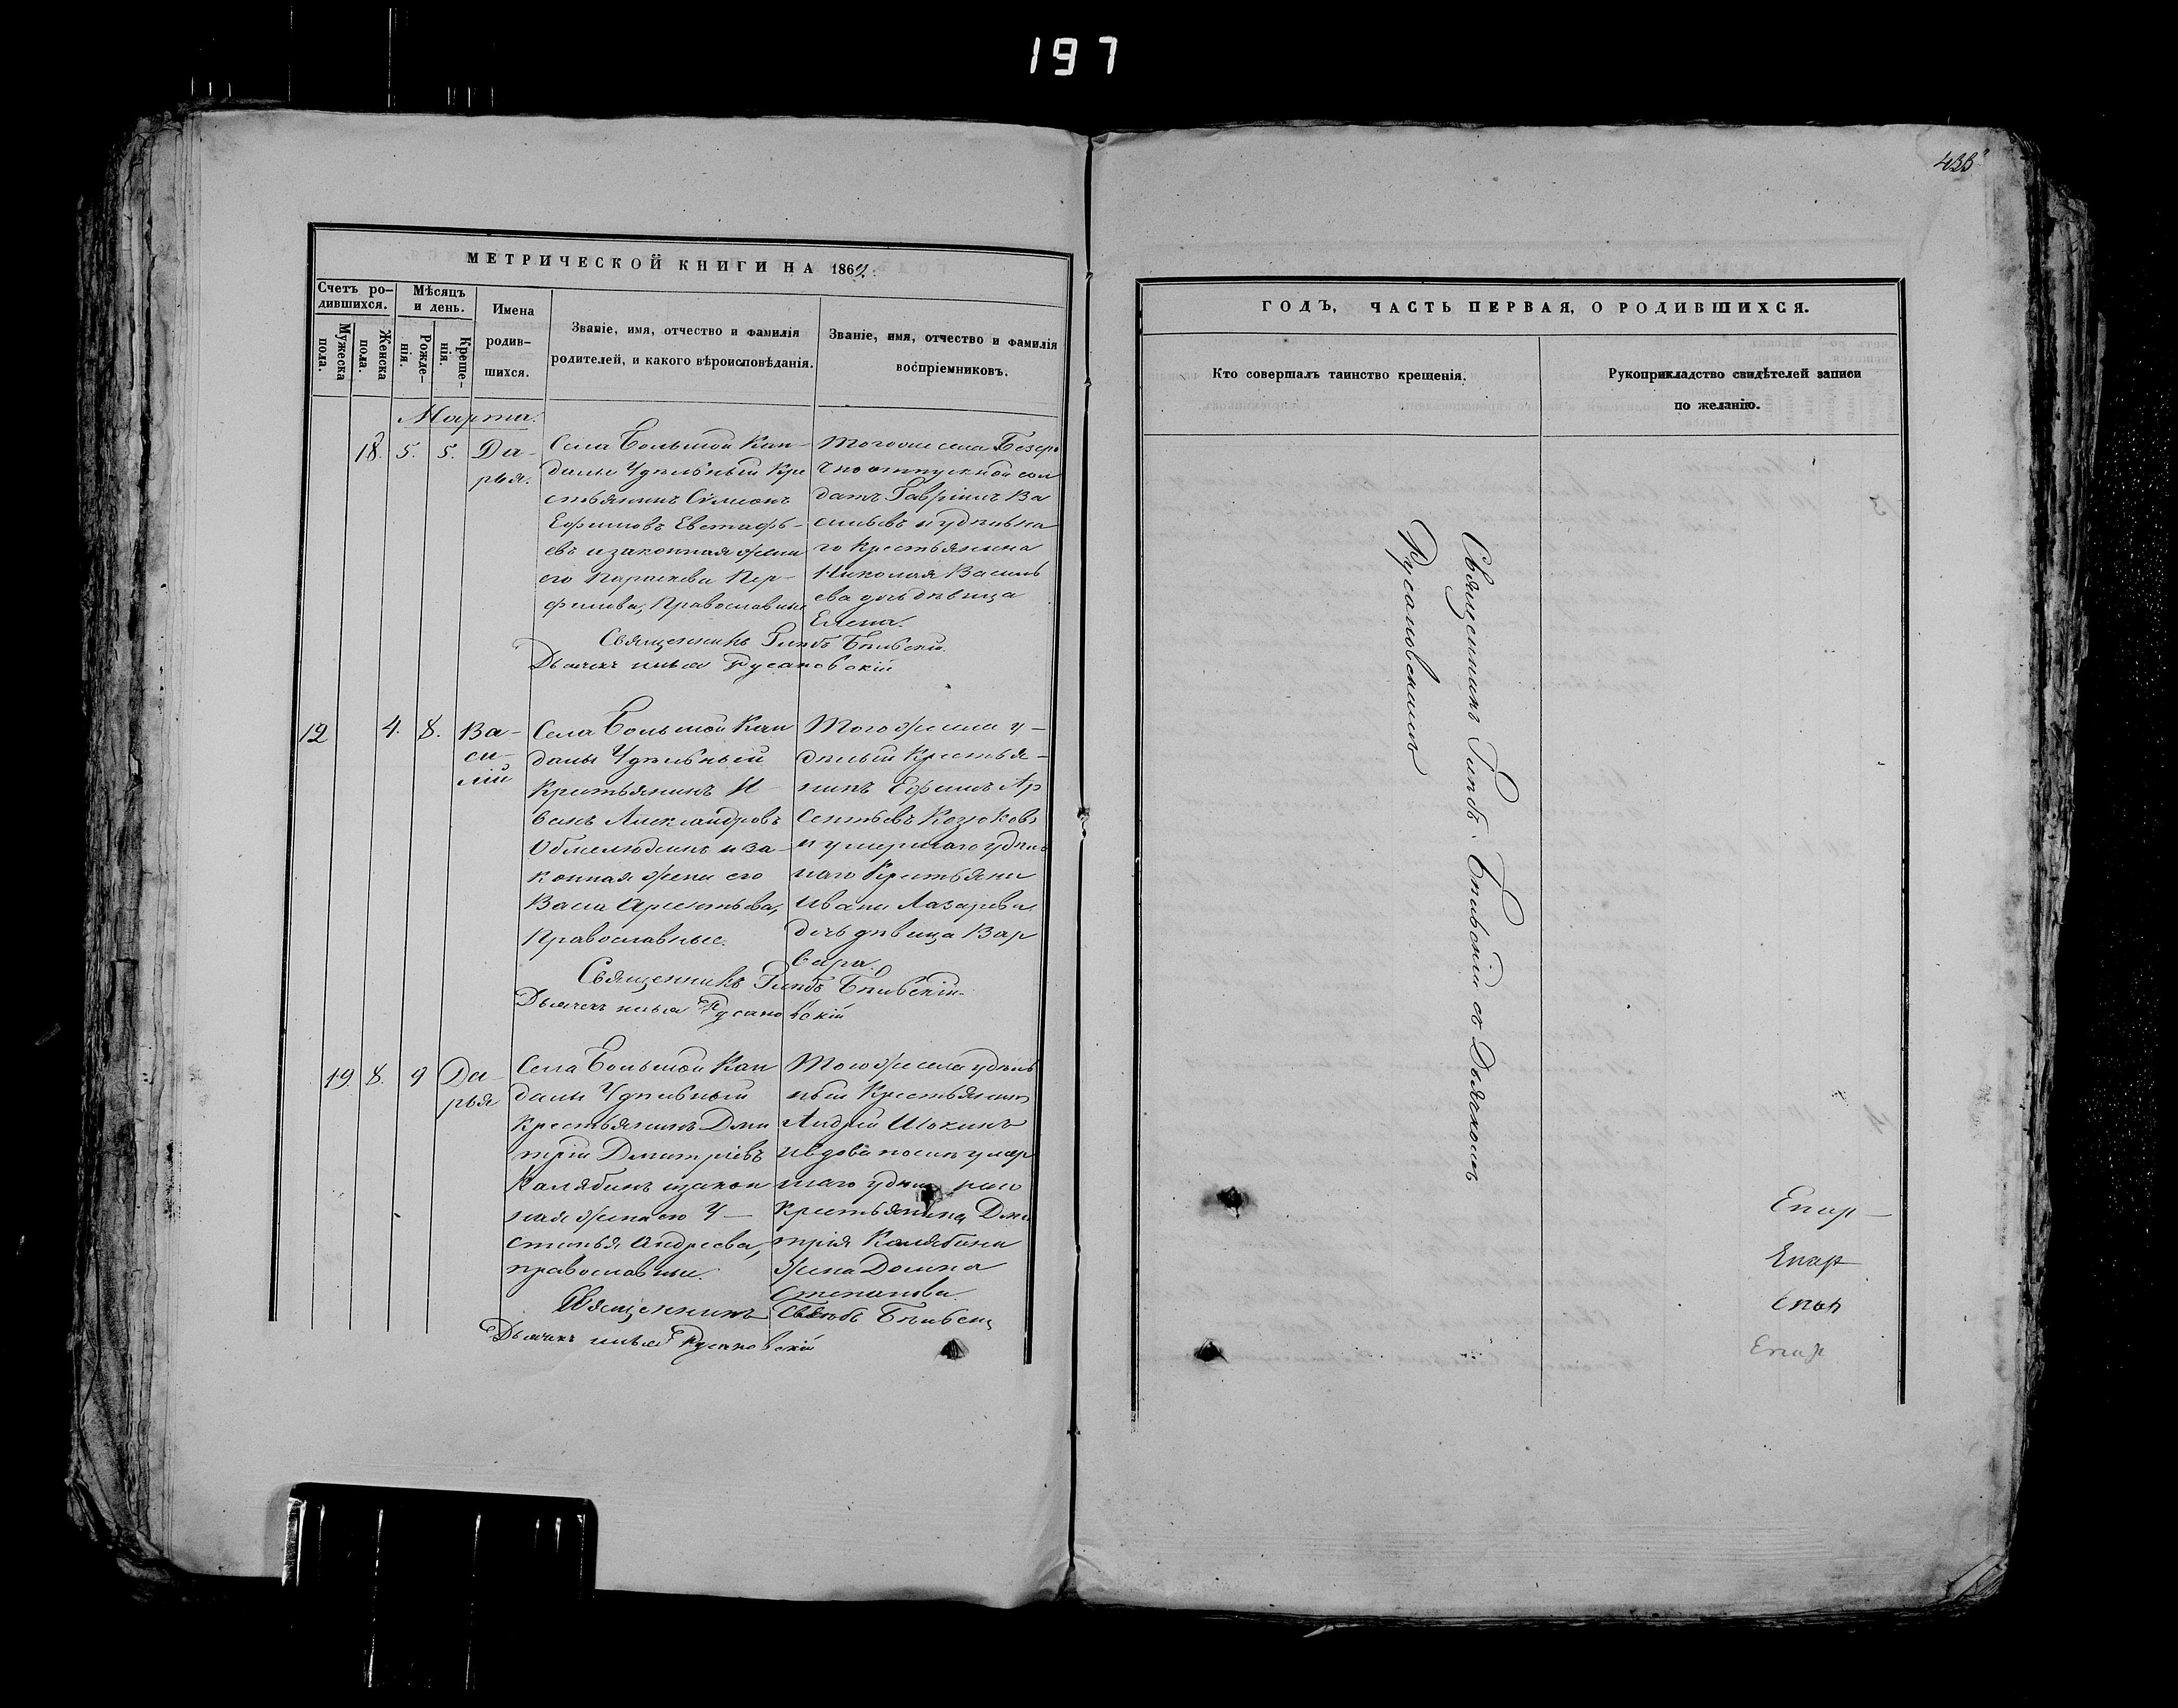 197
433
МЕТРИЧЕСКОЙ КНИГИ НА 1862.
Счетъ ро-
дившихся.
Мѣсяцъ
и день.
Имена
родив-
шихся.
Званіе, имя, отчество и фамилія
родителей, и какого вѣроисповѣданія.
Званіе, имя, отчество и фамилія
воспріемниковъ.
Мужеска
пола.
Женска
пола.
Рожде-
нія.
Креще-
нія.
Марта.
18. 5. 5. Да-
рья.
Села Большой Кан-
далы Удѣльный Кре
стьянинъ Сѵмеонъ
Ефимовъ Евстафь-
евъ и законная жена
его Параскева Пер-
филова, Православные
Тогоже села Безсро
чноотпускной сол
датъ Гавріилъ Ва
сильевъ и удѣльна
го крестьянина
Николая Василь
ева дочь дѣвица
Елена.
Священникъ Глѣбъ Бѣльскій.
Дьячекъ Русановскій
12 4. 8. Ва-
си-
лій
Села Большой Кан
далы Удѣльный
Крестьянинъ И
ванъ Александровъ
и за-
конная жена его
Васа Арсентьева,
Православные.
Тогоже села у-
дѣльный Крестья-
нинъ Ефимъ Ар
сентьевъ Козюковъ
и умершаго удѣль
наго Крестьяни
Ивана Лазарева
дочь дѣвица Вар
вара.
Священникъ Глѣбъ Бѣльскій.
Дьячекъ Русановскій
19 8. 9 Да-
рья
Села Большой Кан
далы Удѣльный
Крестьянинъ Дми
трій Дмитріевъ
Калябинъ и закон
ная жена его У-
стинья Андреева,
православные.
Тогоже села удѣль
ный Крестьянинъ
Андрей Шокинъ
и вдова послѣ умер
шаго
Крестьянина Дми
трія Калябина
жена Домна
Степанова.
Священникъ Глѣбъ Бѣльскій
Дьячекъ Русановскій
ГОДЪ, ЧАСТЬ ПЕРВАЯ, О РОДИВШИХСЯ.
Кто совершалъ таинство крещенія.
Рукоприкладство свидѣтелей записи
по желанію.
Священникъ Глѣбъ Бѣльскій съ Дьячкомъ
Русановскимъ
Епар
Епар
Епар
Епар